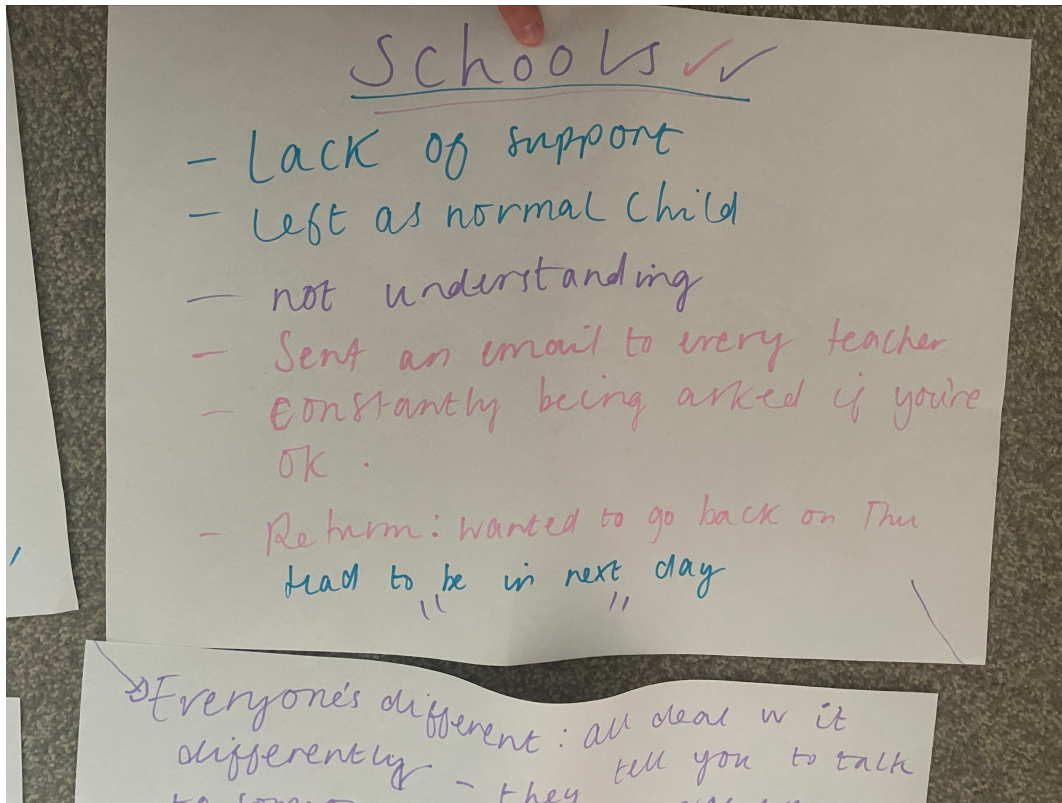 Schools ✓✓
- Lack of support
- Left as normal child
- not understanding
- Sent an email to every teacher
- Constantly being asked if you're
OK.
- Return: wanted to go back on Thu
Had to be in next day
" "
Everyone's different: all deal w it
differently - they tell you to talk